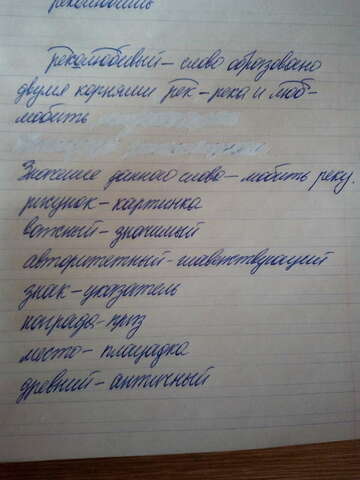 реколюбить
реколюбивый – слово образовано
двумя корнями рек – река и люб –
любить
Значение данного слова – любить реку.
рисунок – картинка
важный – значимый
авторитетный – главенствующий
знак – указатель
награда – приз
место – площадка
древний – античный